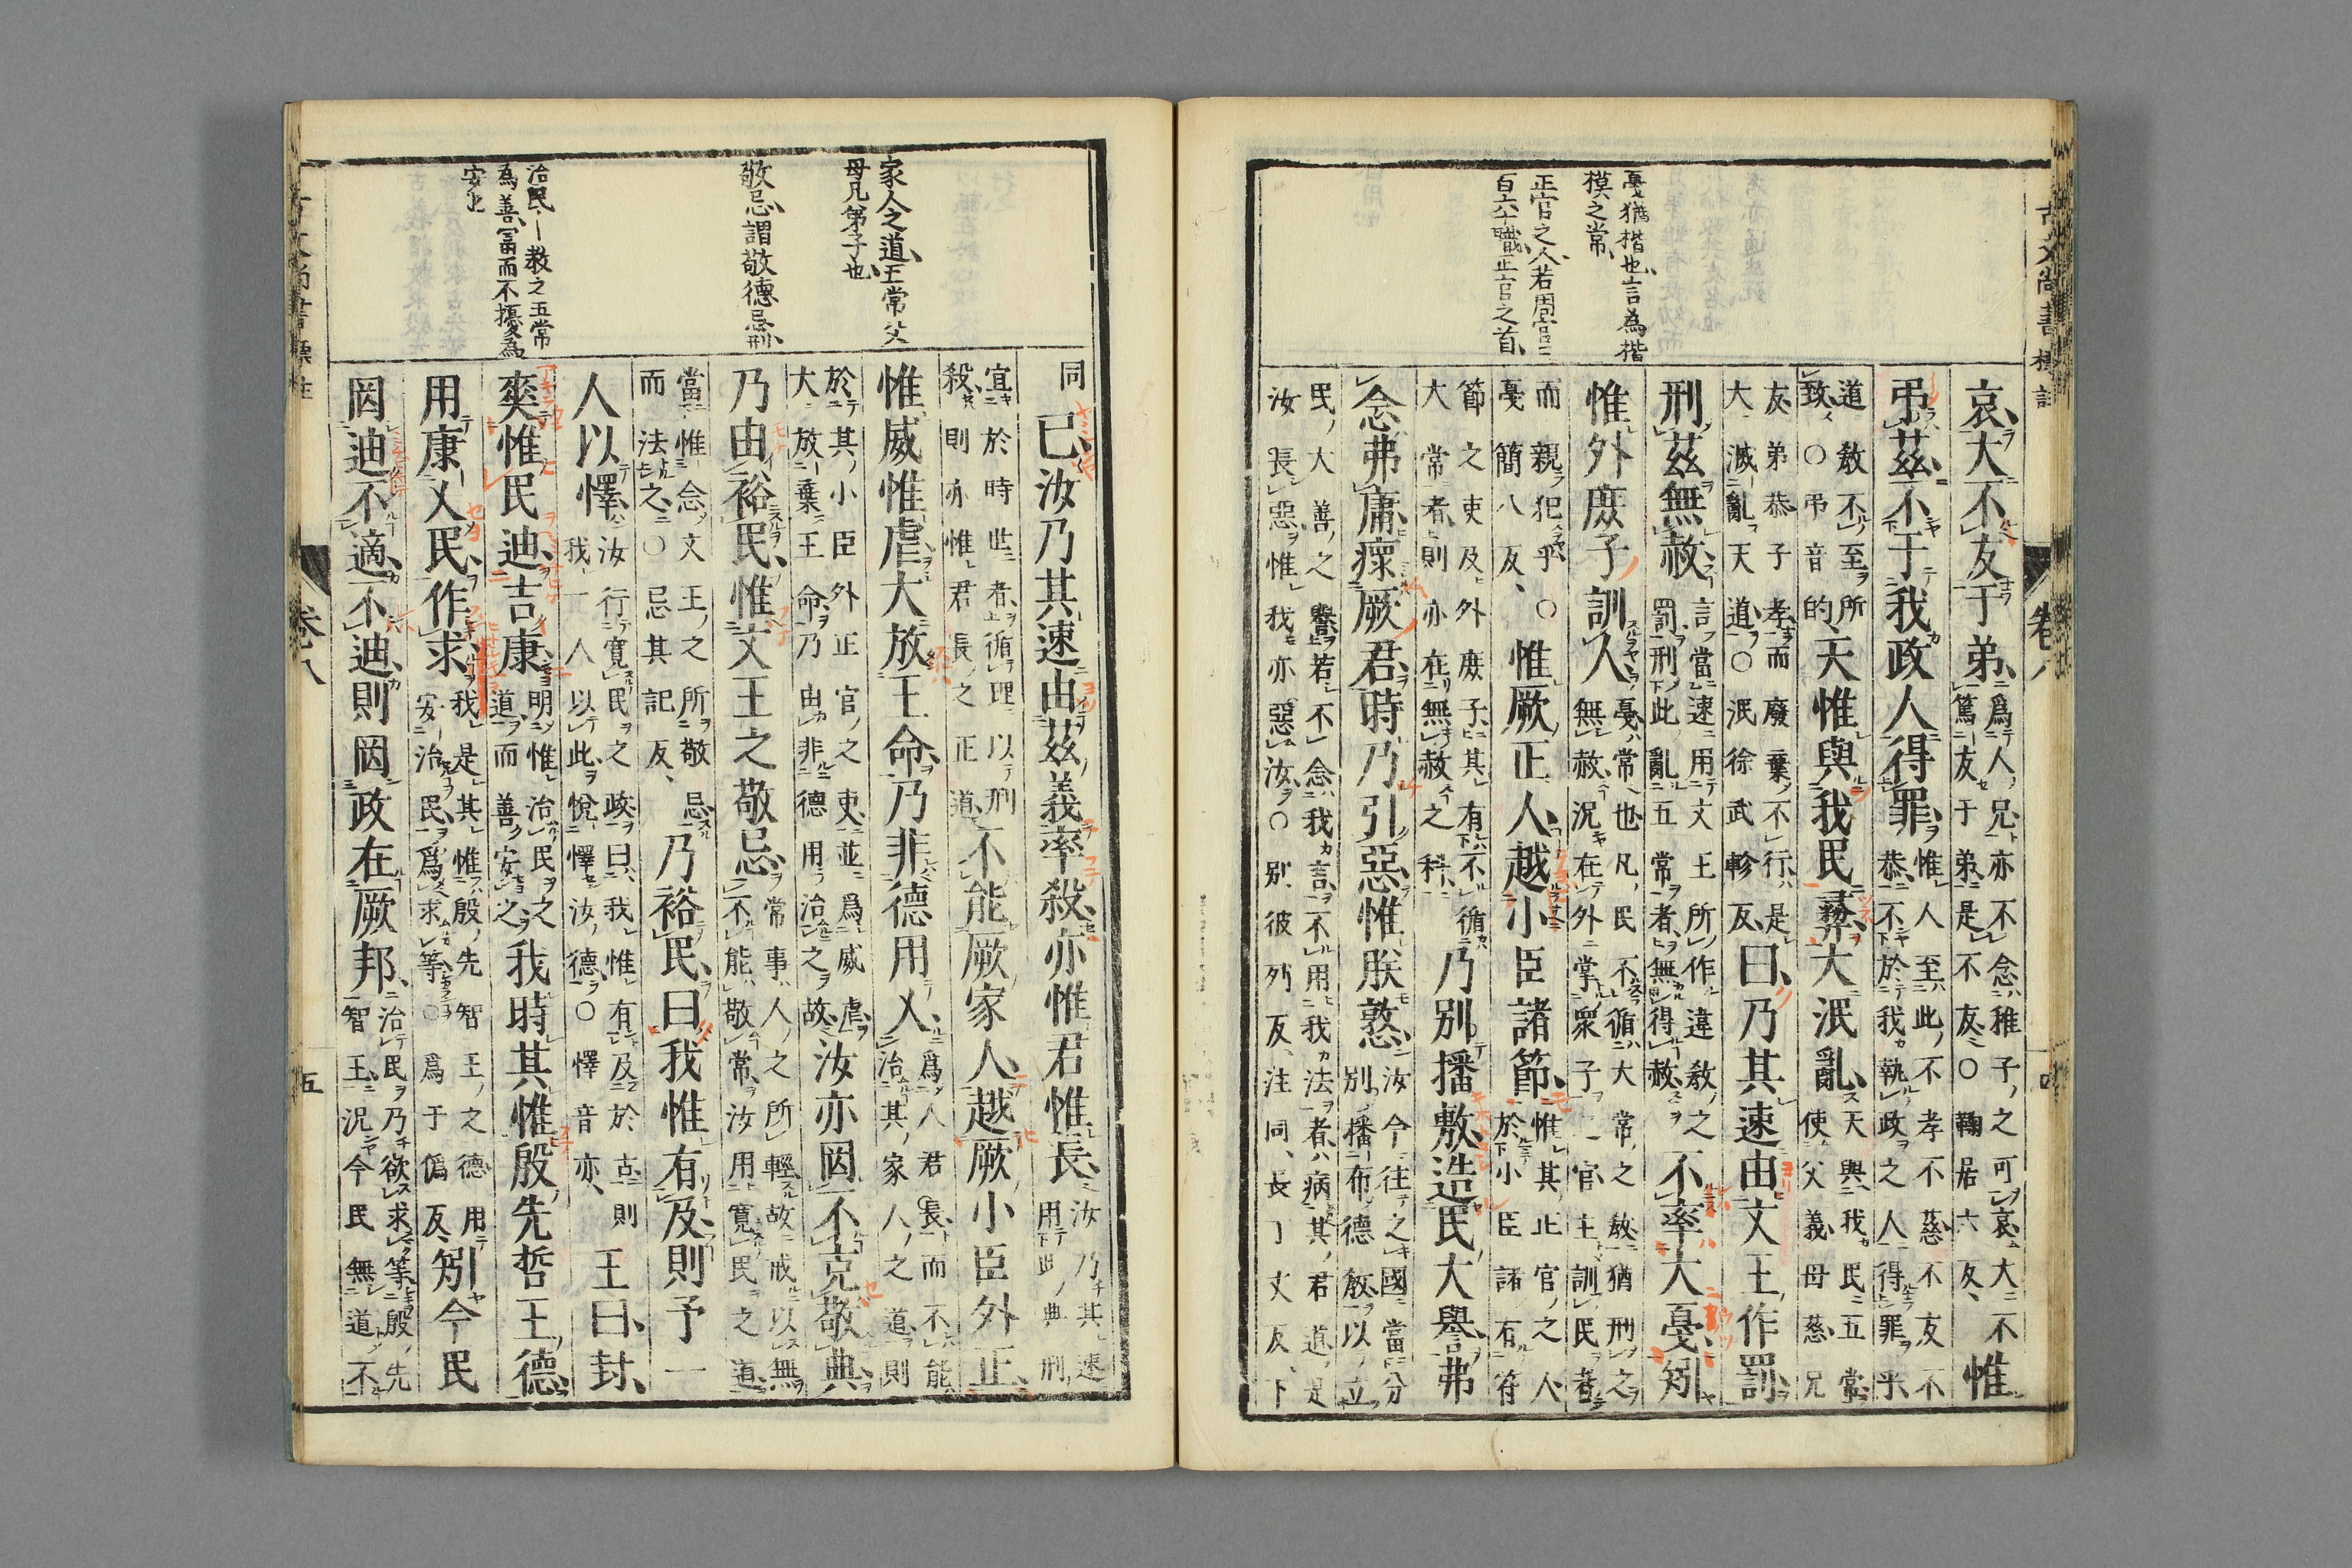 戞猶楷也言為楷
模之常
正官之人若周官三
百六十職正官之首
哀大不友于弟為人兄亦不念稚子之可哀大不
篤友于弟是不友〇鞠居六反惟
弔茲不于我政人得罪惟人至此不孝不慈不友不
恭不於我執政之人得罪乎
道教不至所
致〇弔音的天惟與我民彝大泯亂天與我民五常
使父義母慈兄
友弟恭子孝而廢棄不行是
大滅亂天道〇泯徐武軫反曰乃其速由文王作罰
刑茲無赦言當速用文王所作違教之
罰刑此亂五常者無得赦不率大戞矧
惟外庶子訓人戞常也凡民不循大常之教猶刑之
無赦況在外掌衆子之官主訓民者
而親犯乎〇
戞簡八反惟厥正人越小臣諸節惟其正官之人
於小臣諸有符
節之吏及外庶子其有不循
大常者則亦在無赦之科乃別播敷造民大譽弗
念弗庸瘝厥君時乃引惡惟朕憝汝今往之國當分
別播布德教以立
民大善之譽若不念我言不用我法者病其君道是
汝長惡惟我亦惡汝〇別彼列反注同長丁丈反下
家人之道王常父
母兄弟子也
敬忌謂敬德忌刑
治民一教之五常
為善富而不擾為
安也
同已汝乃其速由茲義率殺亦惟君惟長汝乃其速
用此典刑
宜於時世者循理以刑
殺則亦惟君長之正道不能厥家人越厥小臣外正
惟威惟虐大放王命乃非德用乂為人君長而不能
治其家人之道則
於其小臣外正官之吏並為威虐
大放棄王命乃由非德用治之故汝亦罔不克敬典
乃由裕民惟文王之敬忌常事人之所輕故戒以無
不能敬常汝用寬民之道
當惟念文王之所敬忌
而法之〇忌其記反乃裕民曰我惟有及則予一
人以懌汝行寬民之政曰我惟有及於古則
我一人以此悅懌汝德〇懌音亦王曰封
爽惟民迪吉康明惟治民之
道而善安之我時其惟殷先哲王德
用康乂民作求我是其惟殷先智王之德用
安治民為求等〇為于偽反矧今民
罔迪不適不迪則罔政在厥邦治民乃欲求等殷先
智王況今民無道不